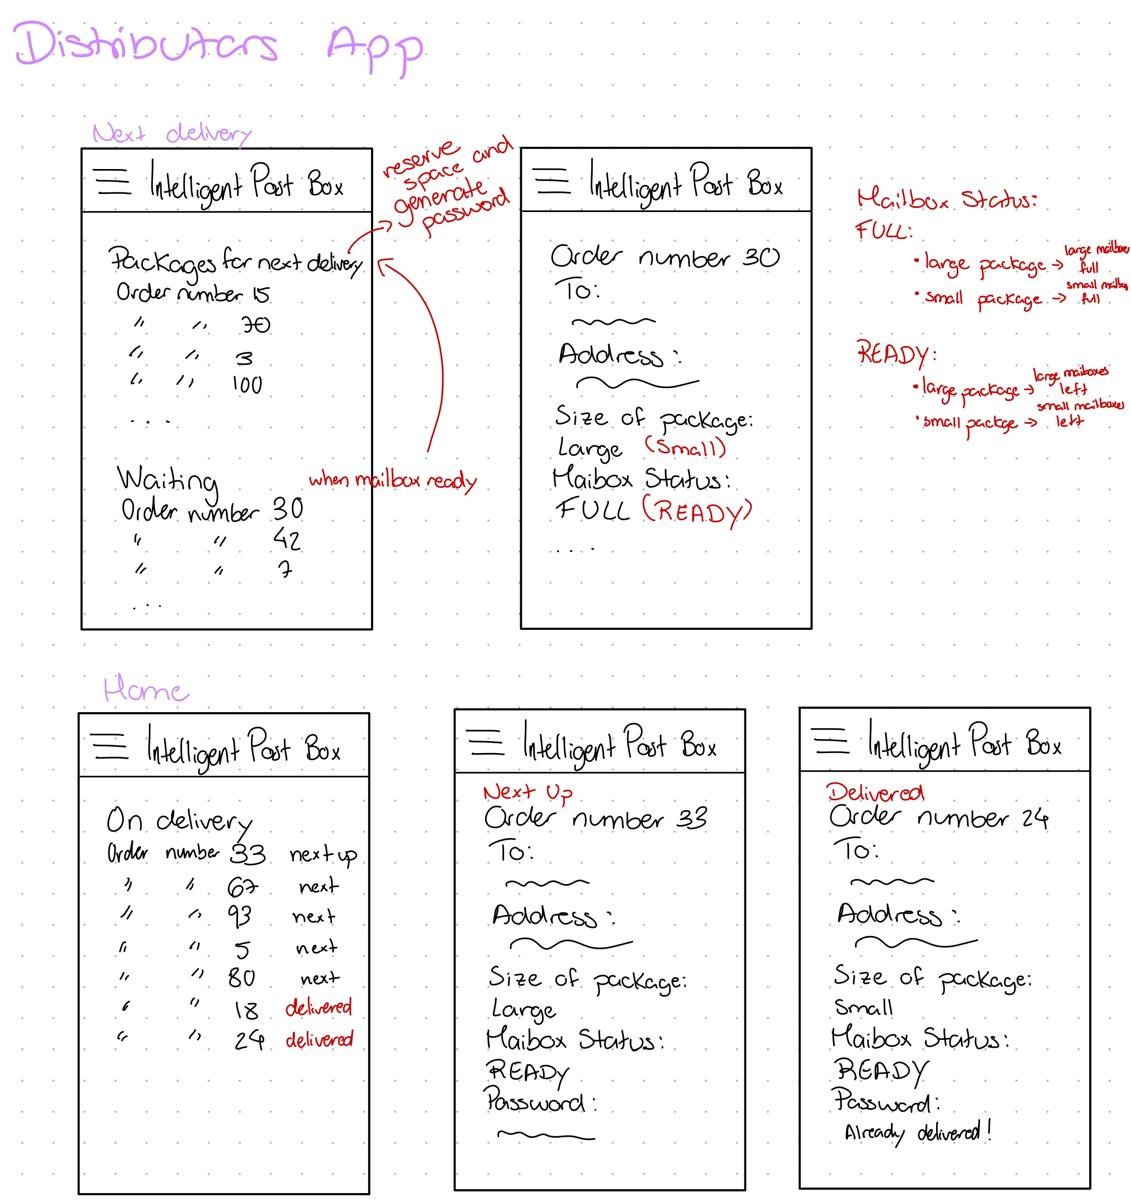 Distributors App
Next delivery
Intelligent Post Box
Packages for next delivery
Order number 15
" " 70
" " 3
" " 100
...
Waiting
Order number 30
" " 42
" " 7
...
reserve
space and
generate
password
when mailbox ready
Intelligent Post Box
Order number 30
To:
Address:
Size of package:
Large (Small)
Maibox Status:
FULL (READY)
....
Mailbox Status:
FULL:
• large package → large mailbox
full
• small package → small mailbox
full
READY:
• large package → large maiboxes
left
• small packge → small mailboxes
left
Home
Intelligent Post Box
On delivery
Order number 33 next up
" " 67 next
" " 93 next
" " 5 next
" " 80 next
" " 18 delivered
" " 24 delivered
Intelligent Post Box
Next Up
Order number 33
To:
Address:
Size of package:
Large
Maibox Status:
READY
Password:
Intelligent Post Box
Delivered
Order number 24
To:
Address:
Size of package:
Small
Maibox Status:
READY
Password:
Already delivered!